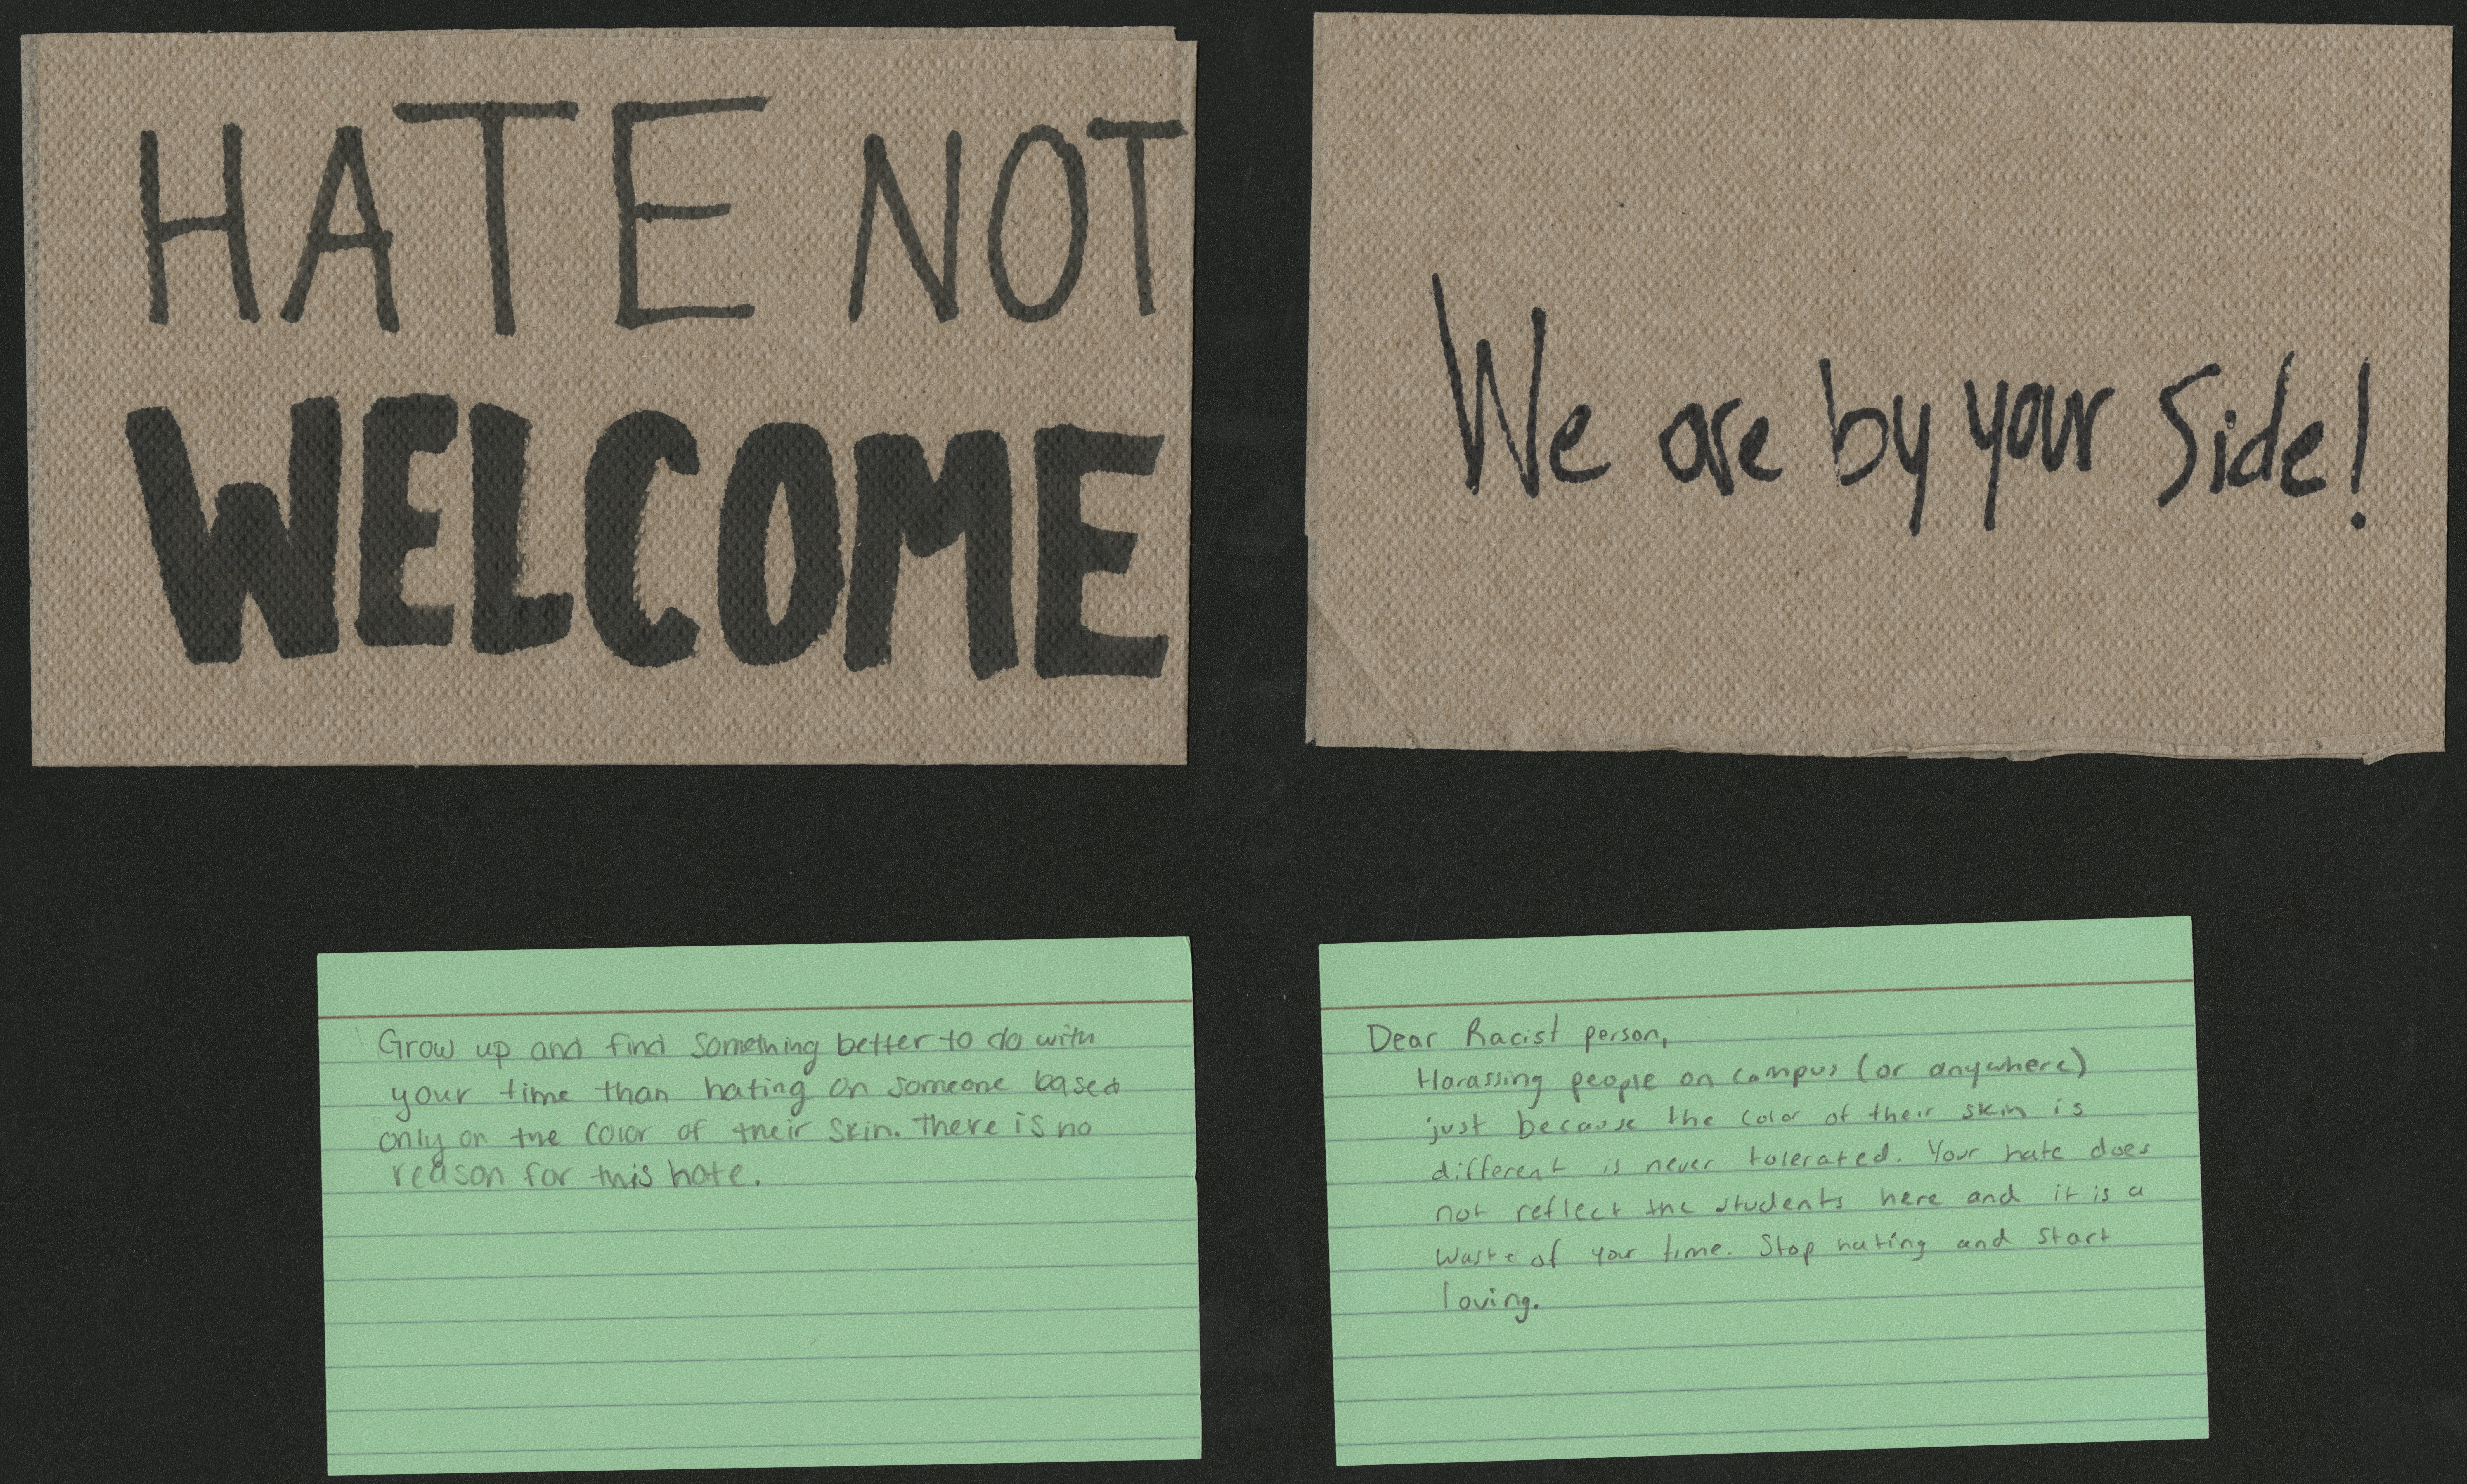 HATE NOT
WELCOME
We are by your side!
Grow up and find something better to do with
your time than hating on someone based
only on the color of their skin. There is no
reason for this hate.
Dear Racist person,
Harassing people on campus (or anywhere)
just because the color of their skin is
different is never tolerated. Your hate does
not reflect the students here and it is a
waste of your time. Stop hating and start
loving.